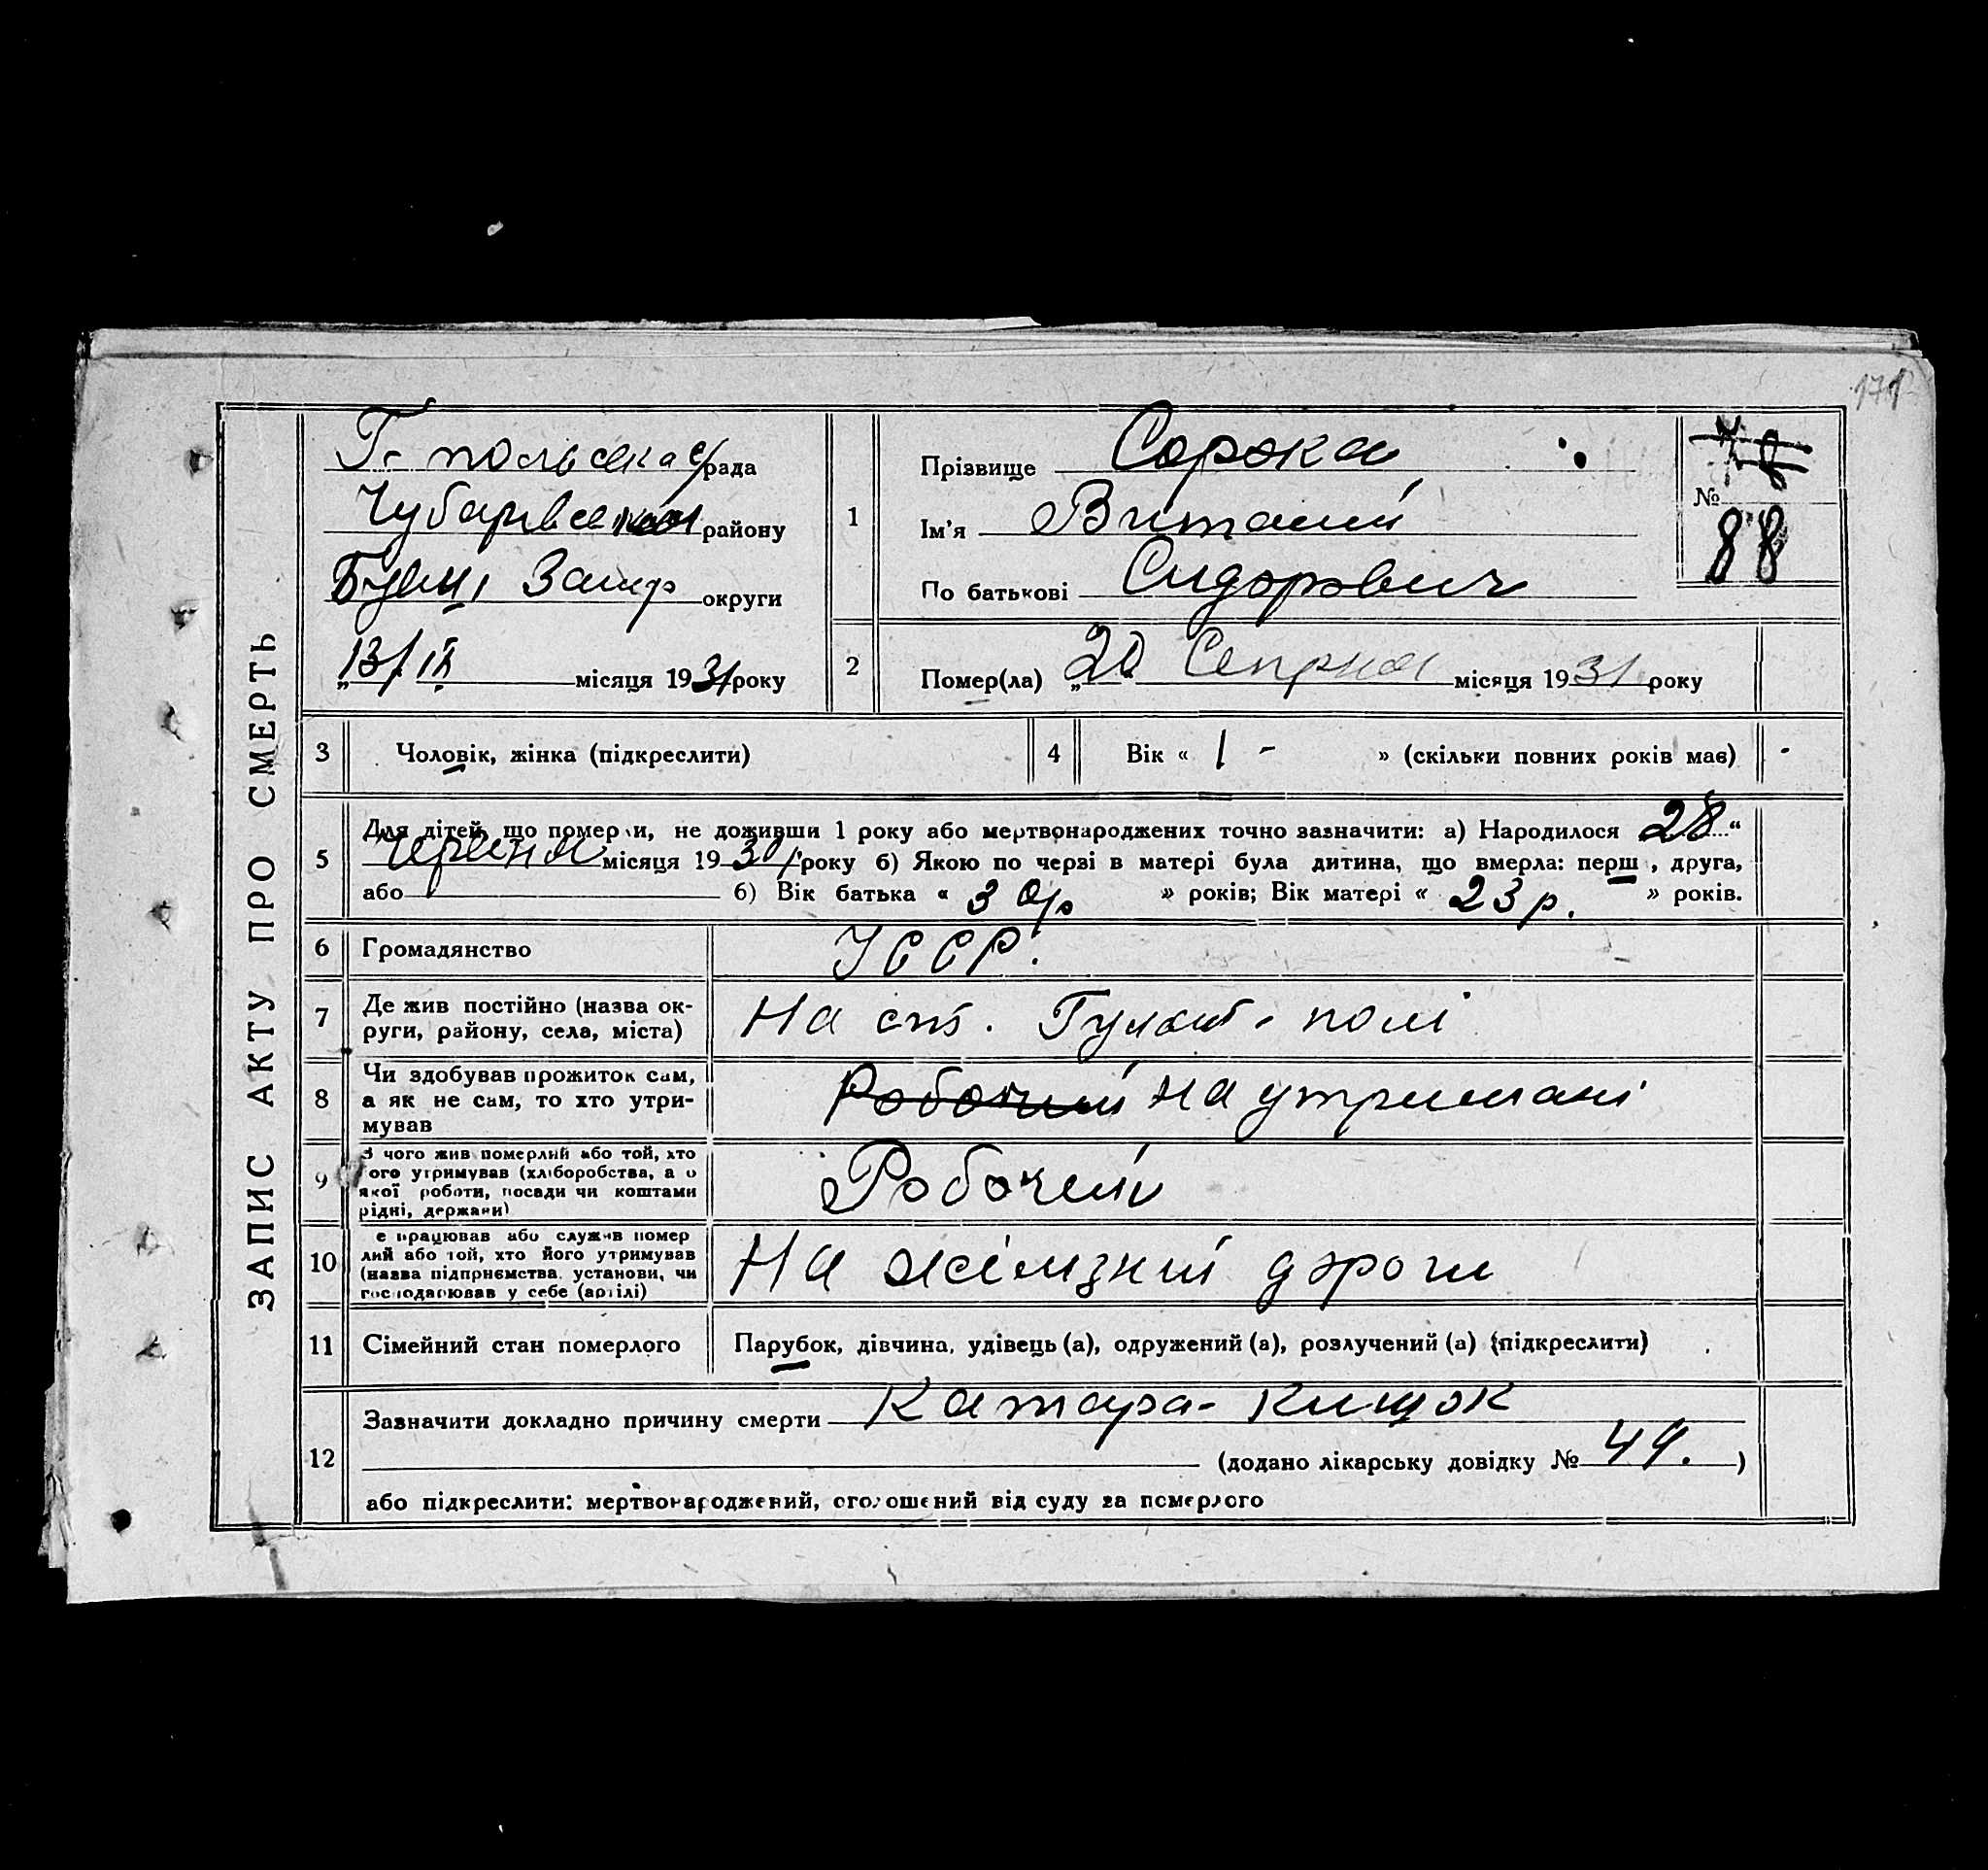 171
ЗАПИС АКТУ ПРО СМЕРТЬ
Г-польська с/рада
Чубарівськ району
Бувш. Запор округи
„13/IX місяця 1931 року
1
Прізвище Сорока
Ім'я Виталий
По батькові Сидорович
№ 78
88
2
Помер(ла) „20 Серпня місяця 1931 року
3 Чоловік, жінка (підкреслити)
4 Вік « 1 - » (скільки повних років має)
5
Для дітей, що померли, не доживши 1 року або мертвонароджених точно зазначити: а) Народилося 28 “
Червня місяця 1930 року б) Якою по черві в матері була дитина, що вмерла: перш , друга,
або б) Вік батька « 30 р » років; Вік матері « 23 р. » років.
6 Громадянство УССР.
7 Де жив постійно (назва ок-
руги, району, села, міста)
На ст. Гуляй-полі
8 Чи здобував прожиток сам,
а як не сам, то хто утри-
мував
Робочий на утримані
9 З чого жив померлий або той, хто
ого утримував (хліборобства, а о
якої роботи, посади чи коштами
рідні, держави)
Робочий
10 е працював або служив помер
лий або той, хто його утримував
(назва підприємства, установи, чи
господарював у себе (артілі)
На желизний дороги
11 Сімейний стан померлого Парубок, дівчина, удівець (а), одружений (а), розлучений (а) (підкреслити)
12
Зазначити докладно причину смерти Катара- Кишок
(додано лікарську довідку № 44. )
або підкреслити: мертвонароджений, оголошений від суду за померлого